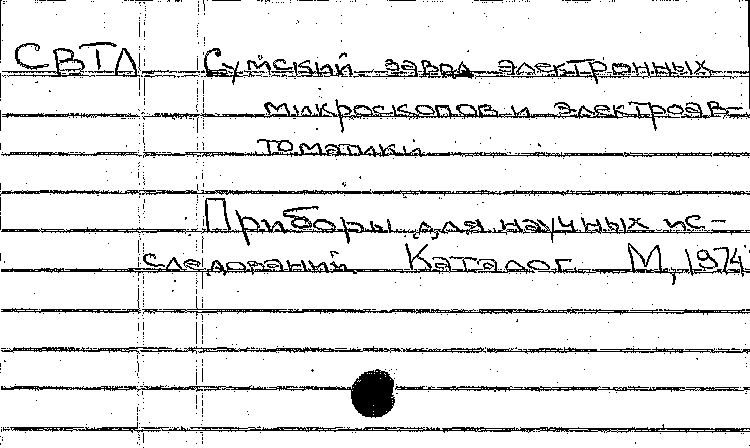 СВТЛ Сумский завод электронных
микроскопов и электроав-
томатики
Приборы для научных ис-
следований. Каталог. М, 1974